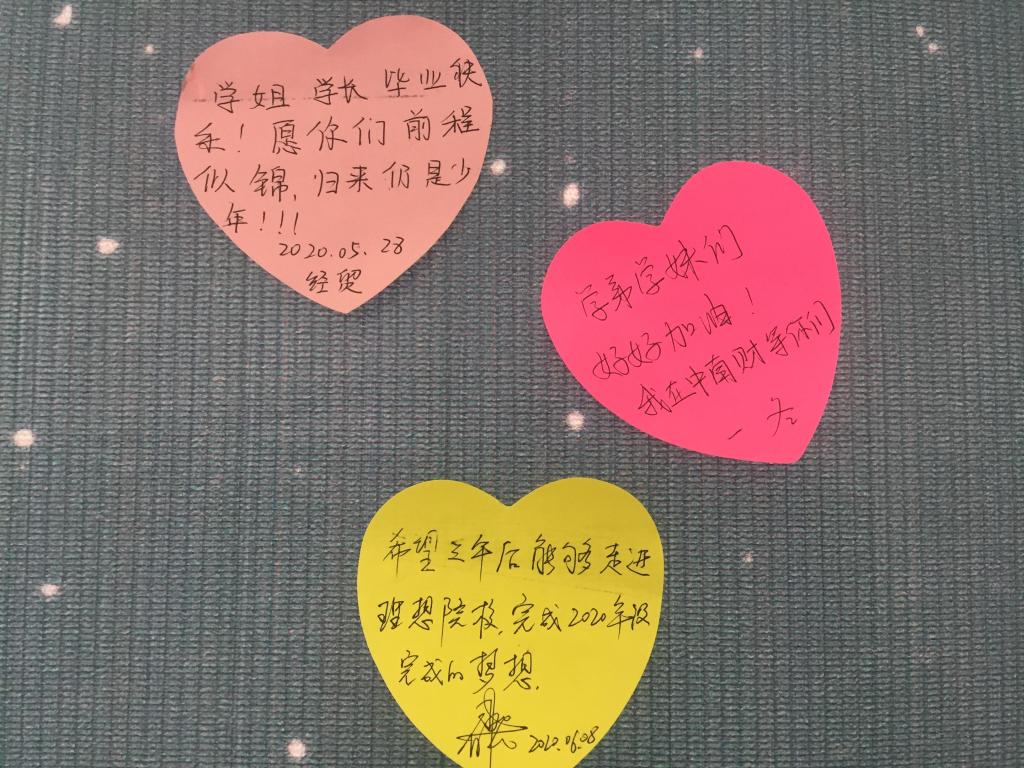 学姐 学长 毕业快
乐！愿你们前程
似锦，归来仍是少
年！！！
2020.05.28
经贸
学弟学妹们
好好加油！
我在中南财等你们
希望三年后能够走进
理想院校，完成2020年没
完成的梦想.
2020.06.08